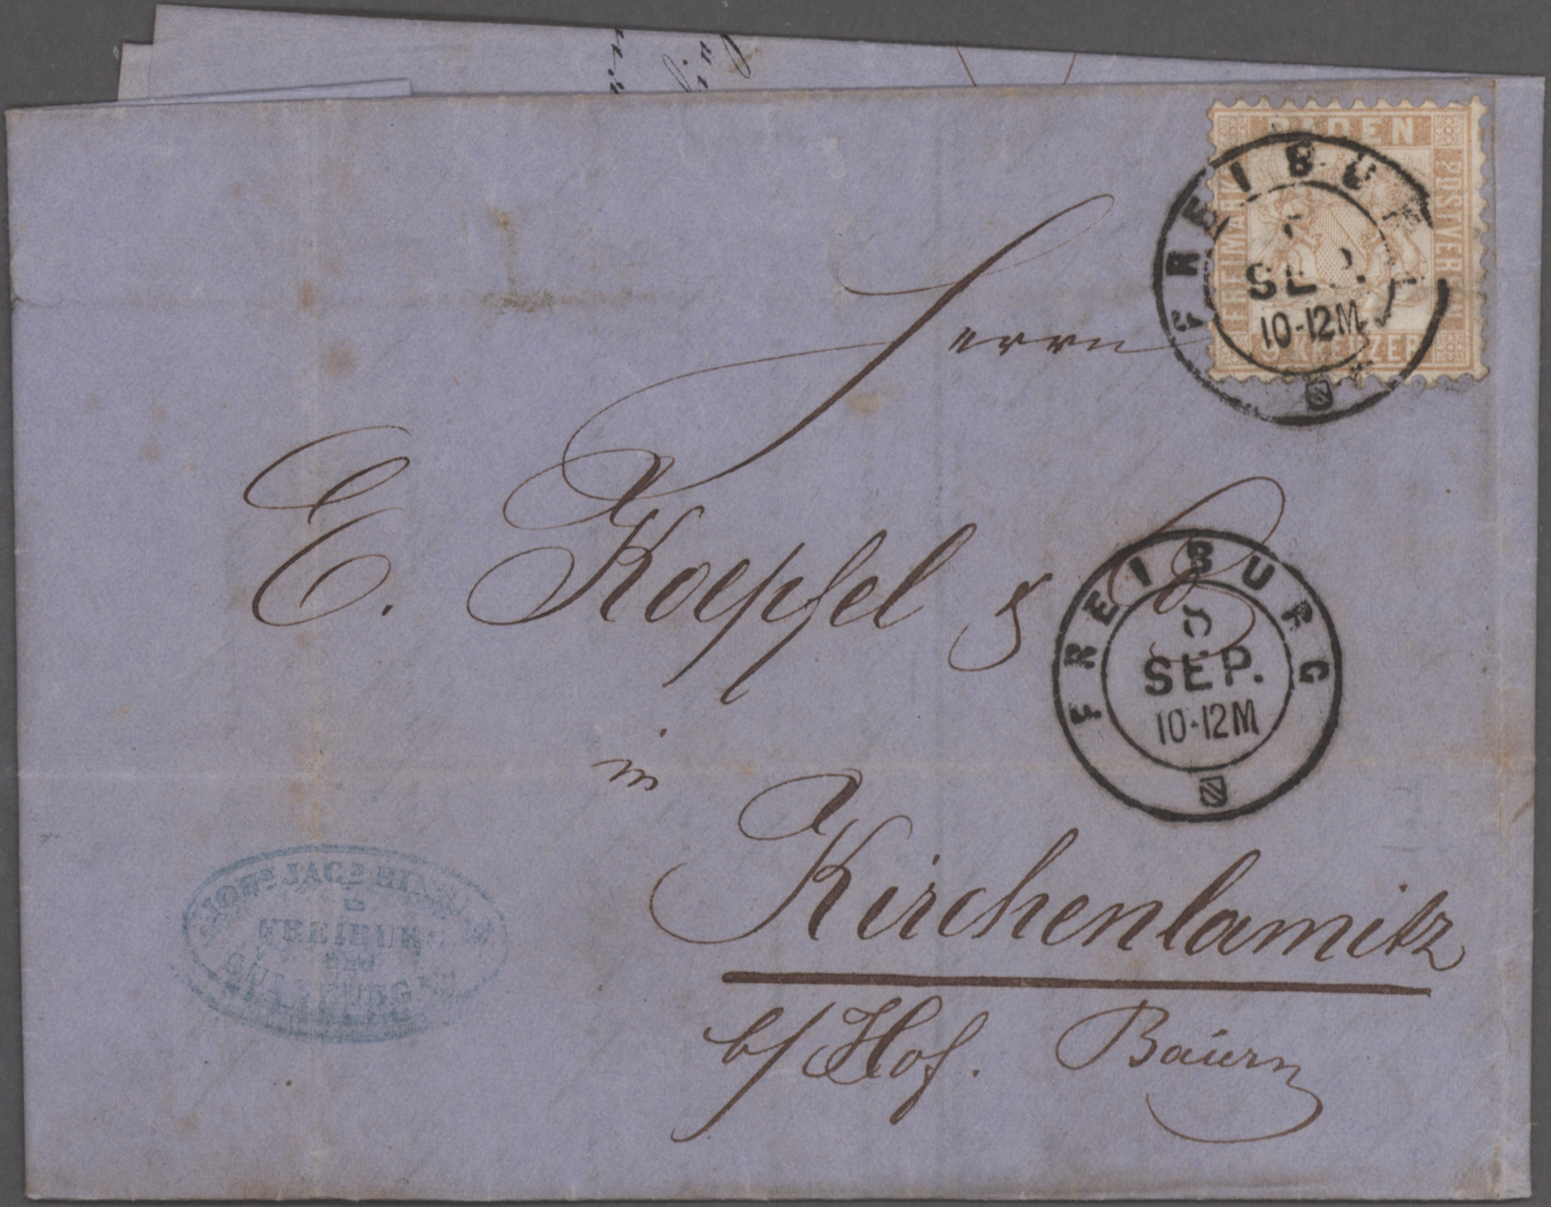 BADEN
FREIMARKE
POSTVEREIN
9 KREUZER
FREIBURG
SEP.
10-12M
Herrn
E. Koepfel & Co
FREIBURG
5
SEP.
10-12M
in
Kirchenlamitz
b/Hof. Baiern
FREIBURG